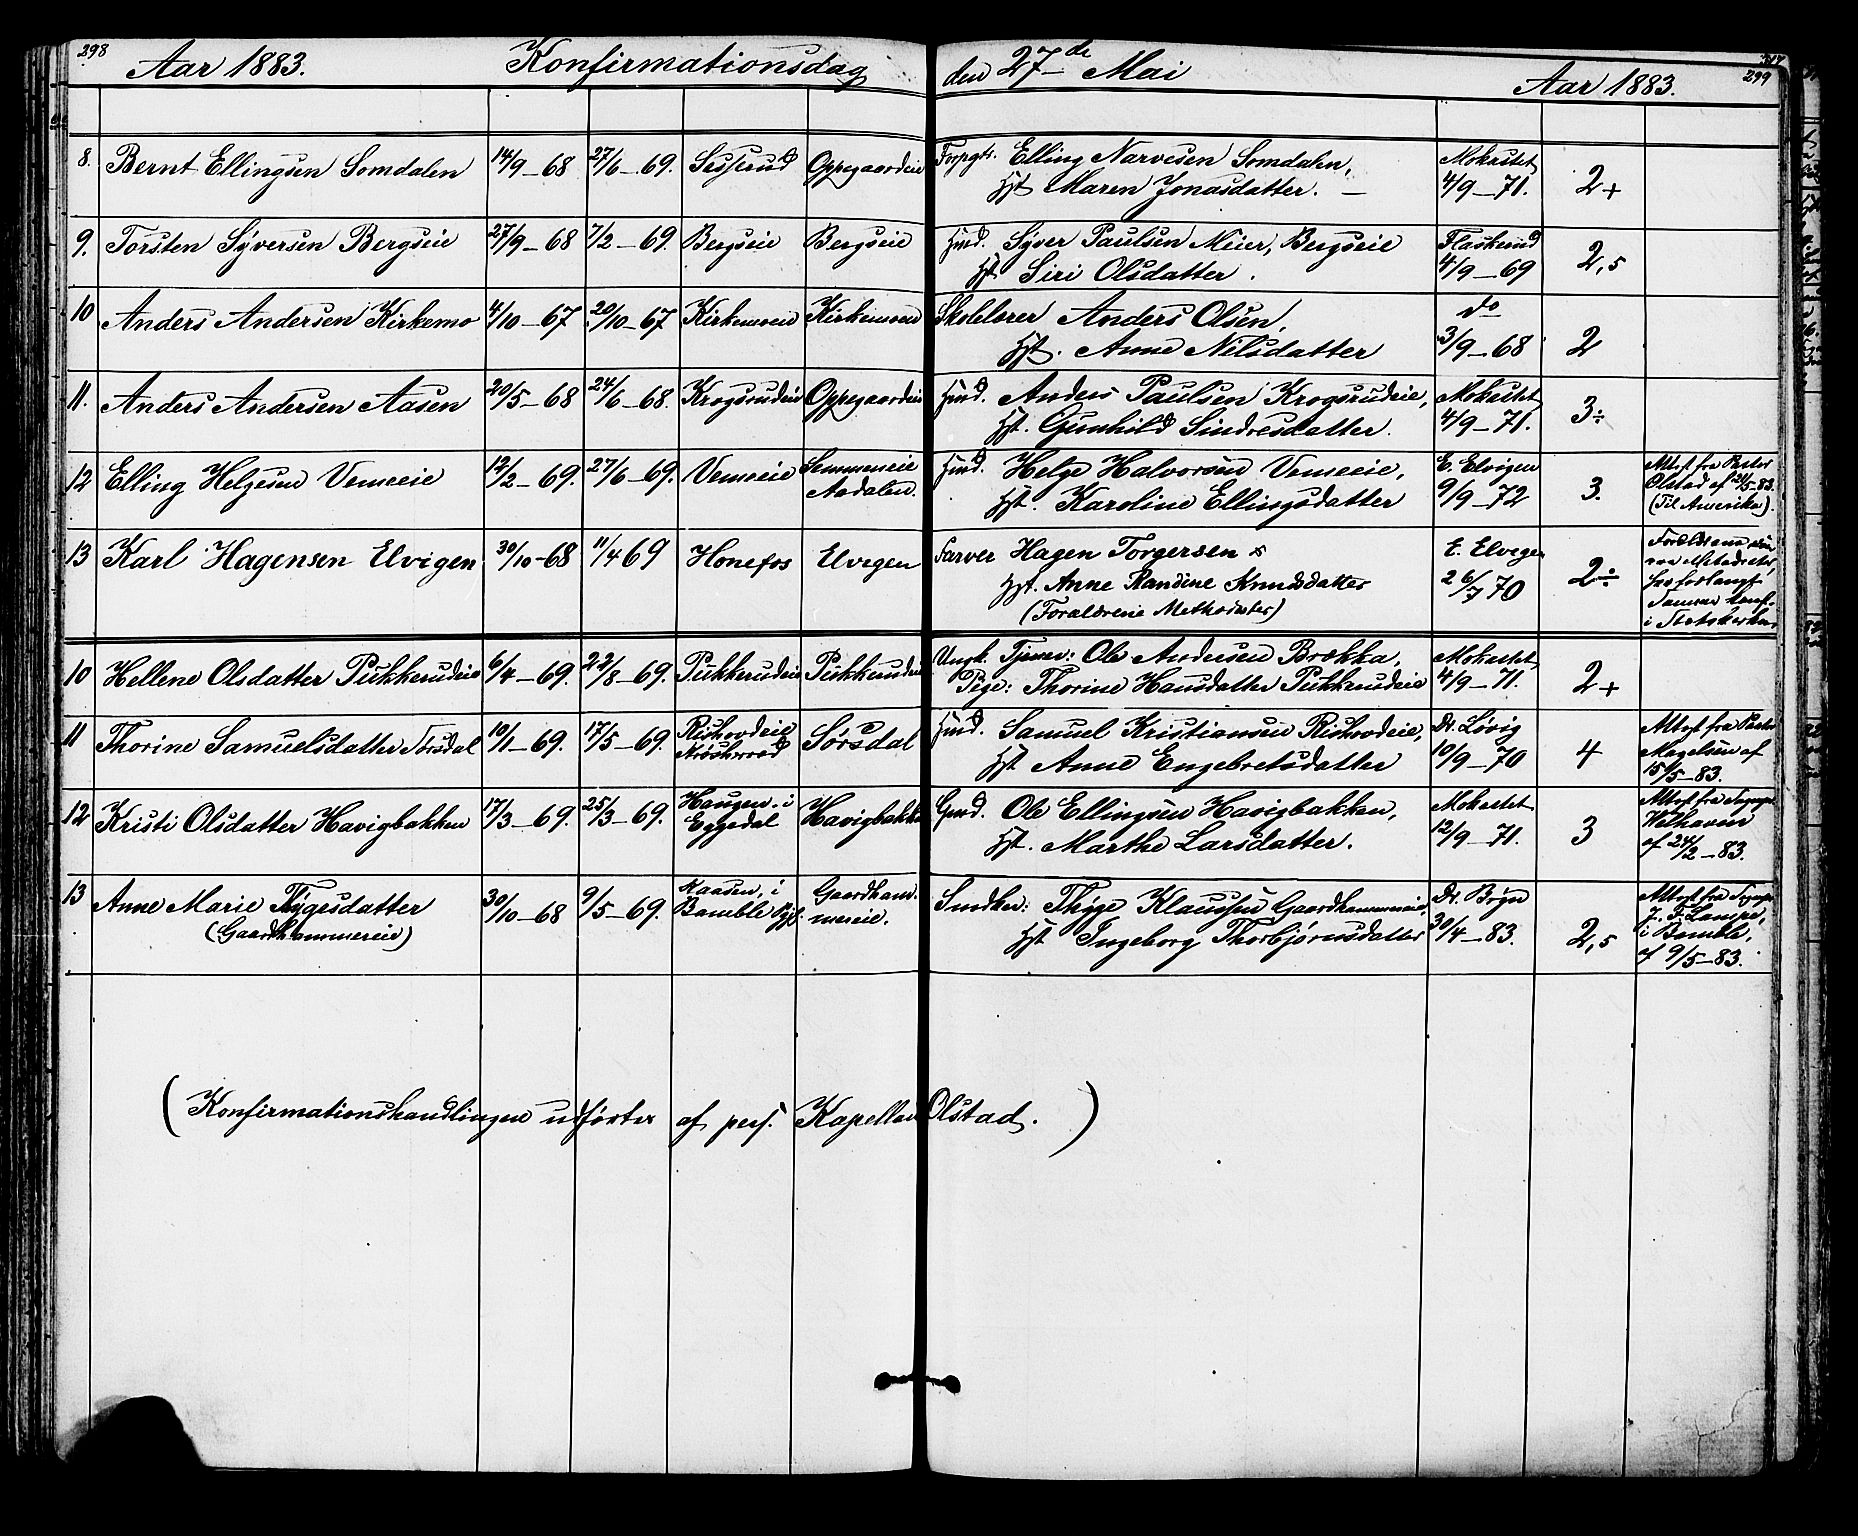 298
Aar 1883. Konfirmationsdag den 27de Mai Aar 1883. 299
8. Bernt Ellingsen Somdalen 14/9–68 27/6–69. Oppegaardeie Forpgtr. Elling Narvesen Somdalen, 4/9–71. 2+
Hst Maren Jonasdatter. –
9. Torsten Syversen Bergseie 27/9–68 7/2–69. Bergseie Bergseie Hmd. Syver Paulsen Meier, Bergseie Flaskerud 2,5
Hst Siri Olsdatter. 4/9–69
10 Anders Andersen Kirkemo 4/10–67 20/10–67 Kirkemoen Kirkemoen Skolelærer Anders Olsen, do 2
Hst. Anne Nilsdatter 3/9–68
11. Anders Andersen Aasen 20/5–68 24/6–68. Krogsrudeie Oppegaardeie Hmd. Anders Paulsen Krogsrudeie, 3÷
Hst. Gunhild Sindresdatter. 4/9–71.
12 Elling Helgesen Vemeeie 12/2–69. 27/6–69. Vemeeie Semmeneie Hmd. Helge Halvorsen Vemeeie, E. Elvigen 3. Attest fra Pastor
Aadalen. Hst. Karoline Ellingsdatter 9/9–72 Olstad af 24/5–83.
(Til Amerika).
13 Karl Hagensen Elvigen 30/10–68 11/4 69 Honefos Elvigen Farver Hagen Torgersen & E. Elvigen 2÷ Forældrene
Hst. Anne Randine Knudsdatter 26/7 70
(Forældrene Methodister) har forlangt
i Statskirken
10 Hellene Olsdatter Pukkerudeie 6/4–69. 22/8–69. Pukkerudeie Pukkerudeie Ungk. Tjener: Ole Andersen Brækka, 2+
Pige: Thorine Hansdatter Pukkerudeie 4/9–71.
11 Thorine Samuelsdatter Sørsdal 10/1–69. 17/5–69. Rishovdeie Sørsdal Hmd. Samuel Kristiansen Rishovdeie, Dr. Løvig 4 Attest fra Pastor
Krøskerred Hst Anne Engebretsdatter 10/9–70 Magelsen af
15/5–83.
12 Kristi Olsdatter Havigbakken 17/3–69. 25/3–69. Haugen i Havigbakken Gmd. Ole Ellingsen Havigbakken, 3 Attest fra Sogpr.
Eggedal Hst. Marthe Larsdatter. 12/9–71. Welhaven
af 24/2–83.
13 Anne Marie Thygesdatter 30/10–68 9/5–69. Kaasen, i Gaardham- Smdker: Thyge Klaussen Gaardhammereie, Dr. Bryn 2,5 Attest fra Sogpr.
(Gaardhammereie) Bamble mereie. Hst Ingeborg Thorbjørnsdatter 30/4–83. J. F. Lampe,
i Bamble,
af 9/5–83.
(Konfirmationshandlingen udførtes af pers. Kapellan Olstad.)